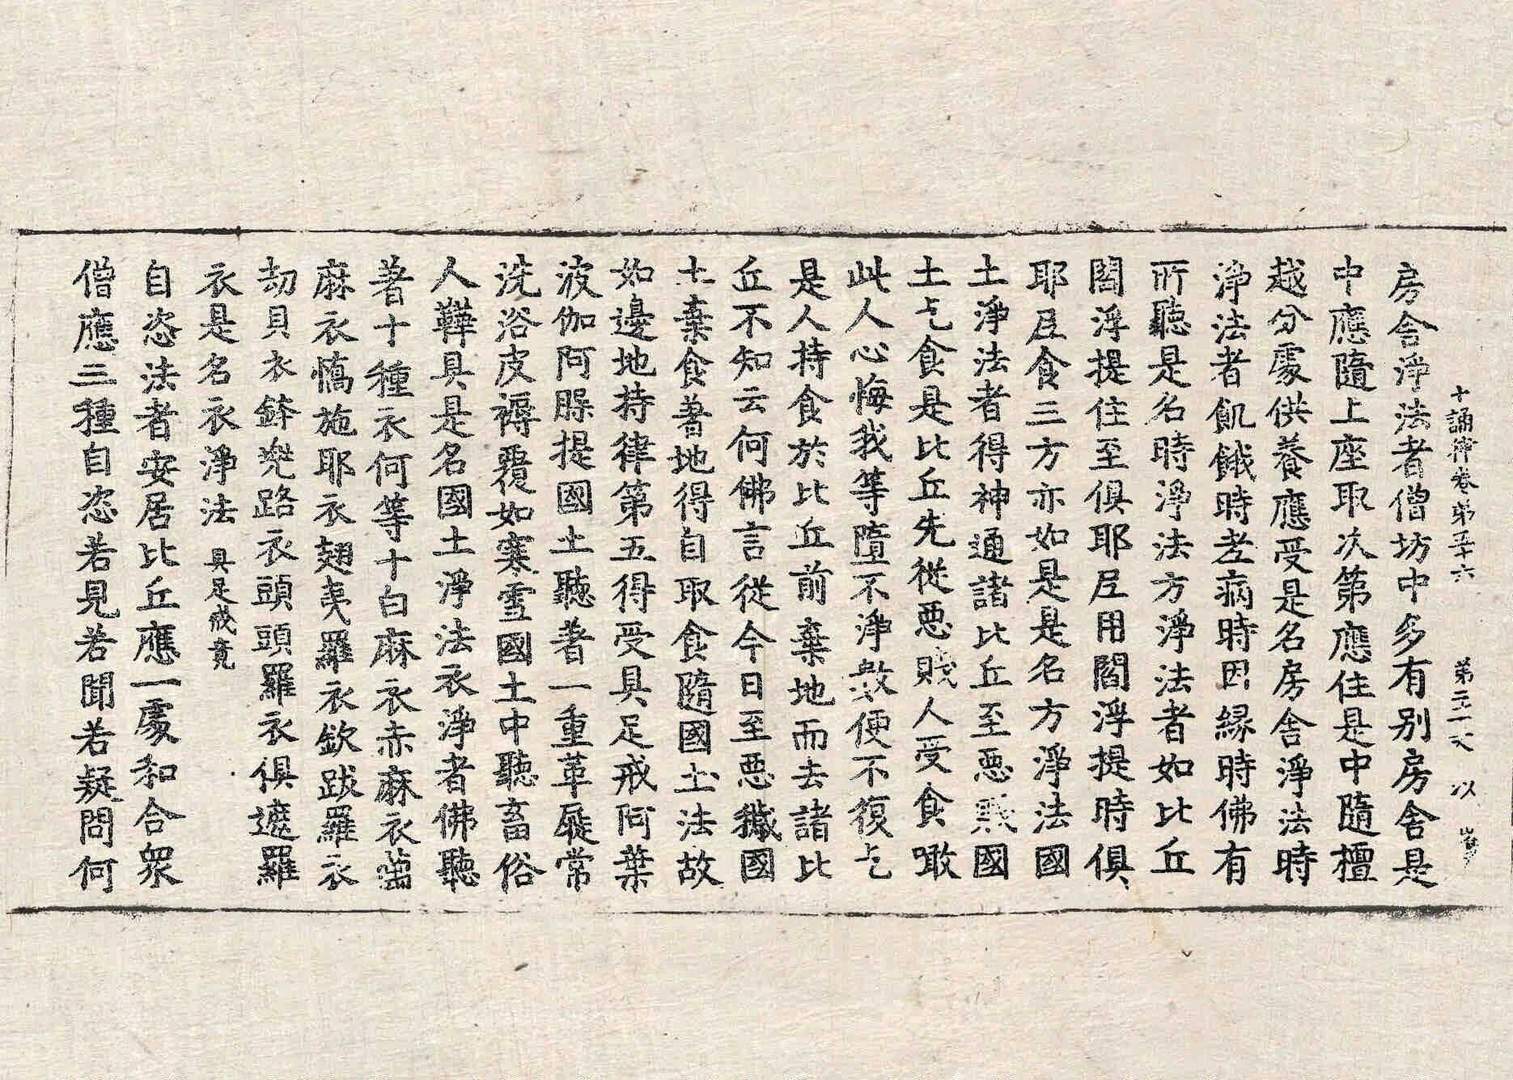 十誦律卷第五十六 第二十一丈 以
房舍淨法者僧坊中多有別房舍是
中應隨上座取次第應住是中隨檀
越分處供養應受是名房舍淨法時
淨法者飢餓時老病時因緣時佛有
所聽是名時淨法方淨法者如比丘
閻浮提住至俱耶尼用閻浮提時俱
耶尼食三方亦如是是名方淨法國
土淨法者得神通諸比丘至惡賤國
土乞食是比丘先從惡賤人受食噉
此人心悔我等墮不淨數便不復乞
是人持食於比丘前棄地而去諸比
丘不知云何佛言從今日至惡獩國
土棄食著地得自取食隨國土法故
如邊地持律第五得受具足戒阿葉
波伽阿䐗提國土聽著一重革屣常
洗浴皮褥覆如寒雪國土中聽畜俗
人鞾具是名國土淨法衣淨者佛聽
著十種衣何等十白麻衣赤麻衣蒭
麻衣憍施耶衣翅夷羅衣欽跋羅衣
劫貝衣鉢兠路衣頭頭羅衣俱遮羅
衣是名衣淨法 具足戒竟
自恣法者安居比丘應一處和合眾
僧應三種自恣若見若聞若疑問何